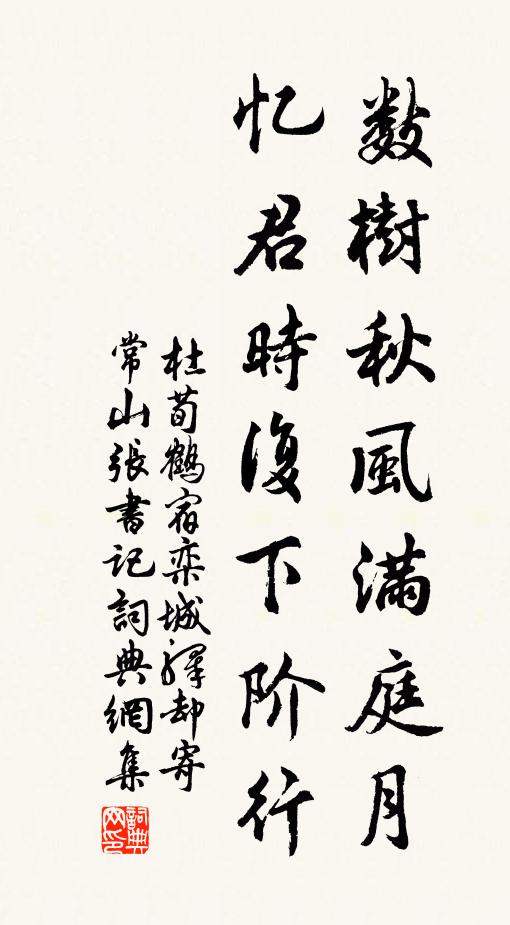 數樹秋風滿庭月
忆君時復下阶行
杜荀鶴宿栾城驛却寄
常山張書記詞典網集
詞典
网印